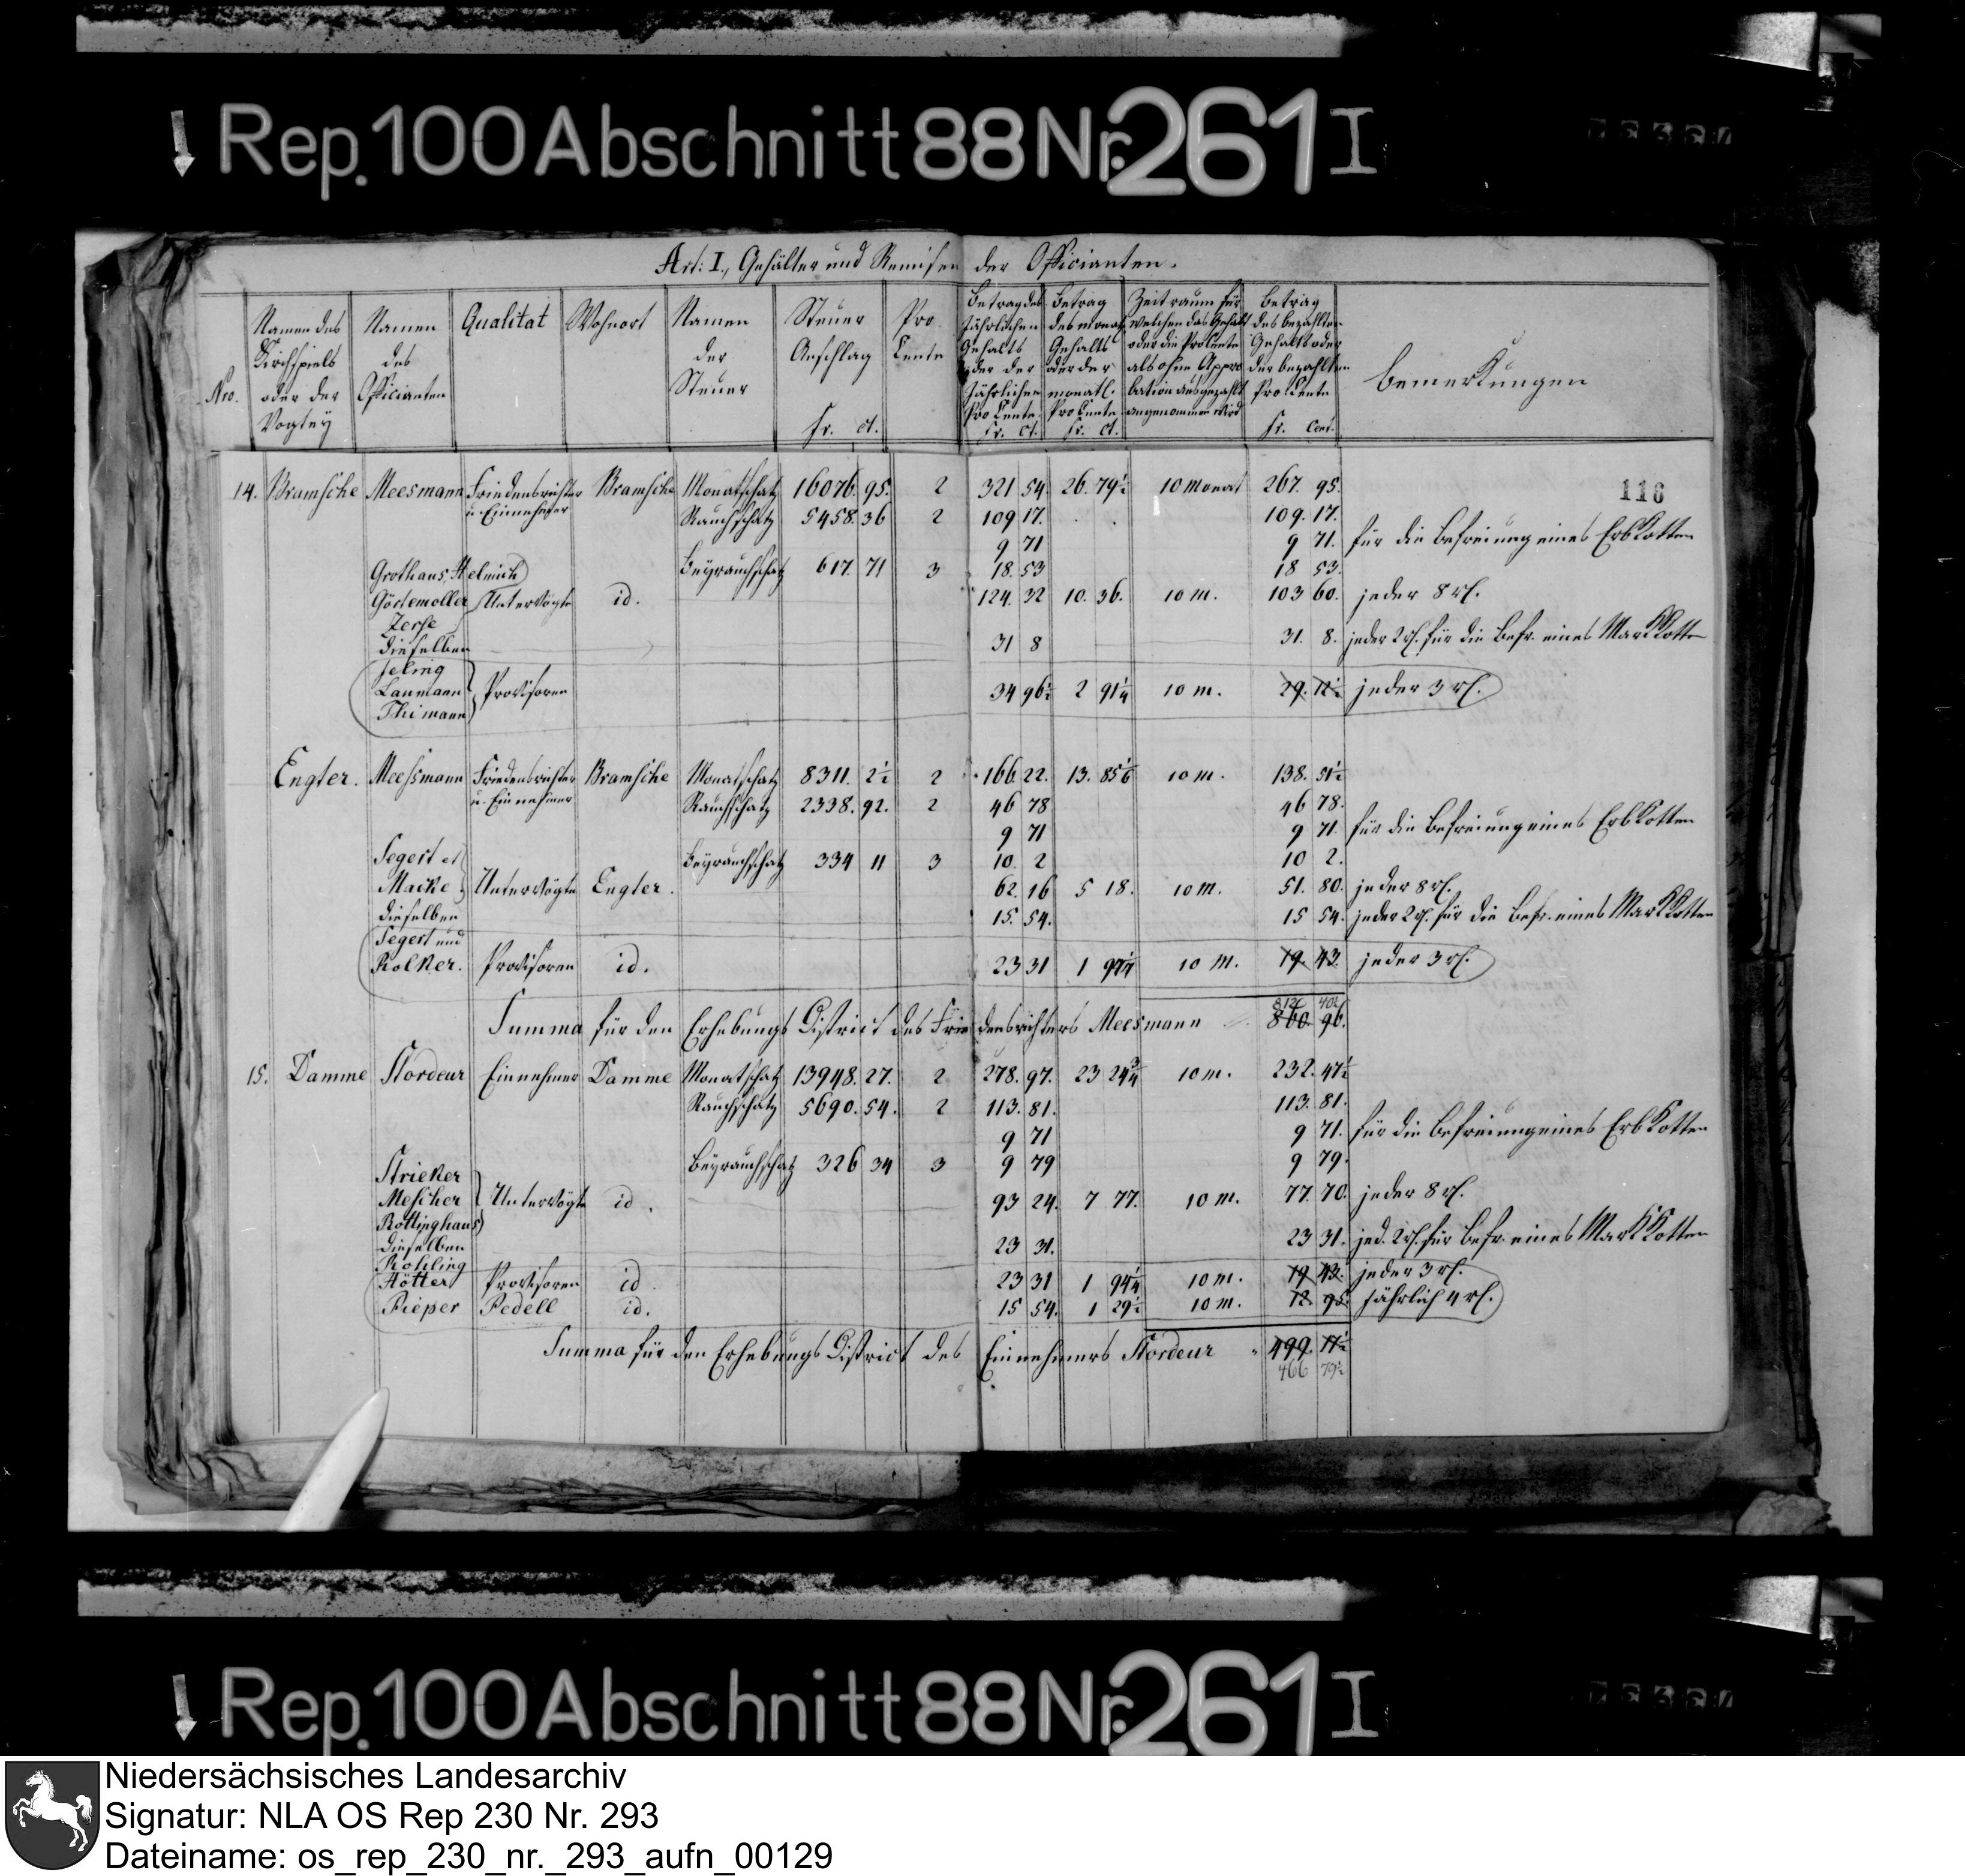 Rep. 100 Abschnitt 88 Nr. 261 I
Art: I., Gehälter und Remisen der Officianten.
Nro.
Namen des Kirchspiels oder der Vogtey
Namen des Officianten
Qualitat
Wohnort
Namen der Steuer
Steuer Anschlag fr. ct.
Pro Cente
Betrag des jährlichen Gehalts oder der jährlichen Pro Cente. fr. ct.
Betrag des monat. Gehalts oder der monatl. Pro Cente fr. ct.
Zeitraum für welchen das Gehalt oder die Pro Cente als ohne Appro bation ausgezahlt angenommen wird
Betrag des bezahlten Gehalts oder der bezahlten Pro Cente fr. Cent.
Bemerkungen
116
14. Bramsche Meesmann Friedensrichter Bramsche Monatschatz 16076. 95. 2 321 54. 26. 79½ 10 Monat 267. 95.
u. Einnehmer Rauchschatz 5458. 36 2 109 17. 109. 17.
9 71 9 71. für die Befreiung eines Erbkotten
Grothaus, Helmich Beyrauchschatz 617. 71 3 18. 53 18 53.
Gösemoller Untervögte id. 124. 32 10. 36. 10 m. 103 60. jeder 8 rl.
Zerse
dieselben 31 8 31. 8. jeder 2 rl. für die Befr. eines MarkKotten
Jeling
Laumann Provisoren 34 96½ 2 91¼ 10 m. 29. 12½ jeder 3 rl.
Thimann
Engter. Meesmann Friedensrichter Bramsche Monatschatz 8311. 2½ 2 166. 22. 13. 85⅙ 10 m. 138. 51½
u. Einnehmer Rauchschatz 2338. 92. 2 46 78 46 78.
9 71 9 71. für die Befreiung eines Erbkotten
Segert et Beyrauchschatz 334 11 3 10. 2 10 2.
Macke Untervögte Engter. 62. 16 5 18. 10 m. 51. 80. jeder 8 rl.
dieselben 15. 54. 15 54. jeder 2 rl. für die Befr. eines MarkKotten
Segert und
Kolker. Provisoren id. 23 31 1 94¼ 10 m. 19. 43. jeder 3 rl.
812 40½
Summa für den Erhebungs District des Friedensrichters Meesmann 860. 96.
15. Damme Nordeur Einnehmer Damme Monatschatz 13948. 27. 2 278. 97. 23 24¾ 10 m. 232. 47½
Rauchschatz 5690. 54. 2 113. 81. 113. 81.
9 71 9 71. für die Befreiung eines Erbkotten
Strieker Beyrauchschatz 326 34 3 9 79 9 79.
Mescher Untervögte id. 93 24. 7 77. 10 m. 77. 70. jeder 8 rl.
Rottinghaus
dieselben 23 31. 23 31. jed. 2 rl. für Befr. eines MarkKotten
Rohling
Hötter Provisoren id 23 31 1 94¼ 10 m. 19 43. jeder 3 rl.
Pieper Pedell id. 15 54. 1 29½ 10 m. 12. 95. jährlich 4 rl.
Summa für den Erhebungs District des Einnehmers Nordeur 499. 17½
466 79½
Rep. 100 Abschnitt 88 Nr. 261 I
Niedersächsisches Landesarchiv
Signatur: NLA OS Rep 230 Nr. 293
Dateiname: os_rep_230_nr._293_aufn_00129